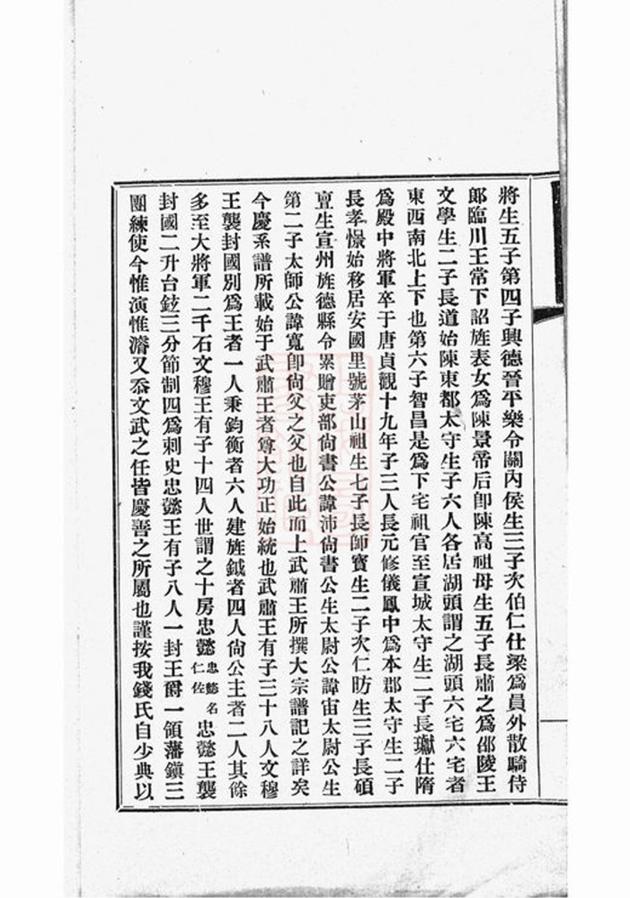 將生五子第四子興德晉平樂令關內侯生三子次伯仁仕梁爲員外散騎侍
郞臨川王常下詔旌表女爲陳景帝后卽陳高祖母生五子長肅之爲邵陵王
文學生二子長道始陳東都太守生子六人各居湖頭謂之湖頭六宅六宅者
東西南北上下也第六子智昌是爲下宅祖官至宣城太守生二子長瓛仕隋
爲殿中將軍卒于唐貞觀十九年子三人長元修儀鳳中爲本郡太守生二子
長孝憬始移居安國里號茅山祖生七子長師寶生二子次仁昉生三子長碩
亶生宣州旌德縣令累贈吏部尙書公諱沛尙書公生太尉公諱宙太尉公生
第二子太師公諱寬卽尙父之父也自此而上武肅王所撰大宗譜記之詳矣
今慶系譜所載始于武肅王者尊大功正始統也武肅王有子三十八人文穆
王襲封國別爲王者一人秉鈞衡者六人建旌鉞者四人尙公主者二人其餘
多至大將軍二千石文穆王有子十四人世謂之十房忠懿忠懿名仁佐忠懿王襲
封國二升台鉉三分節制四爲刺史忠懿王有子八人一封王爵一領藩鎭三
團練使今惟演惟濟又忝文武之任皆慶善之所屬也謹按我錢氏自少典以